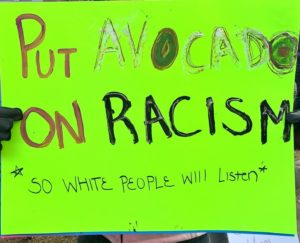 PUT AVOCADO
ON RACISM
*SO WHITE PEOPLE WIll Listen*